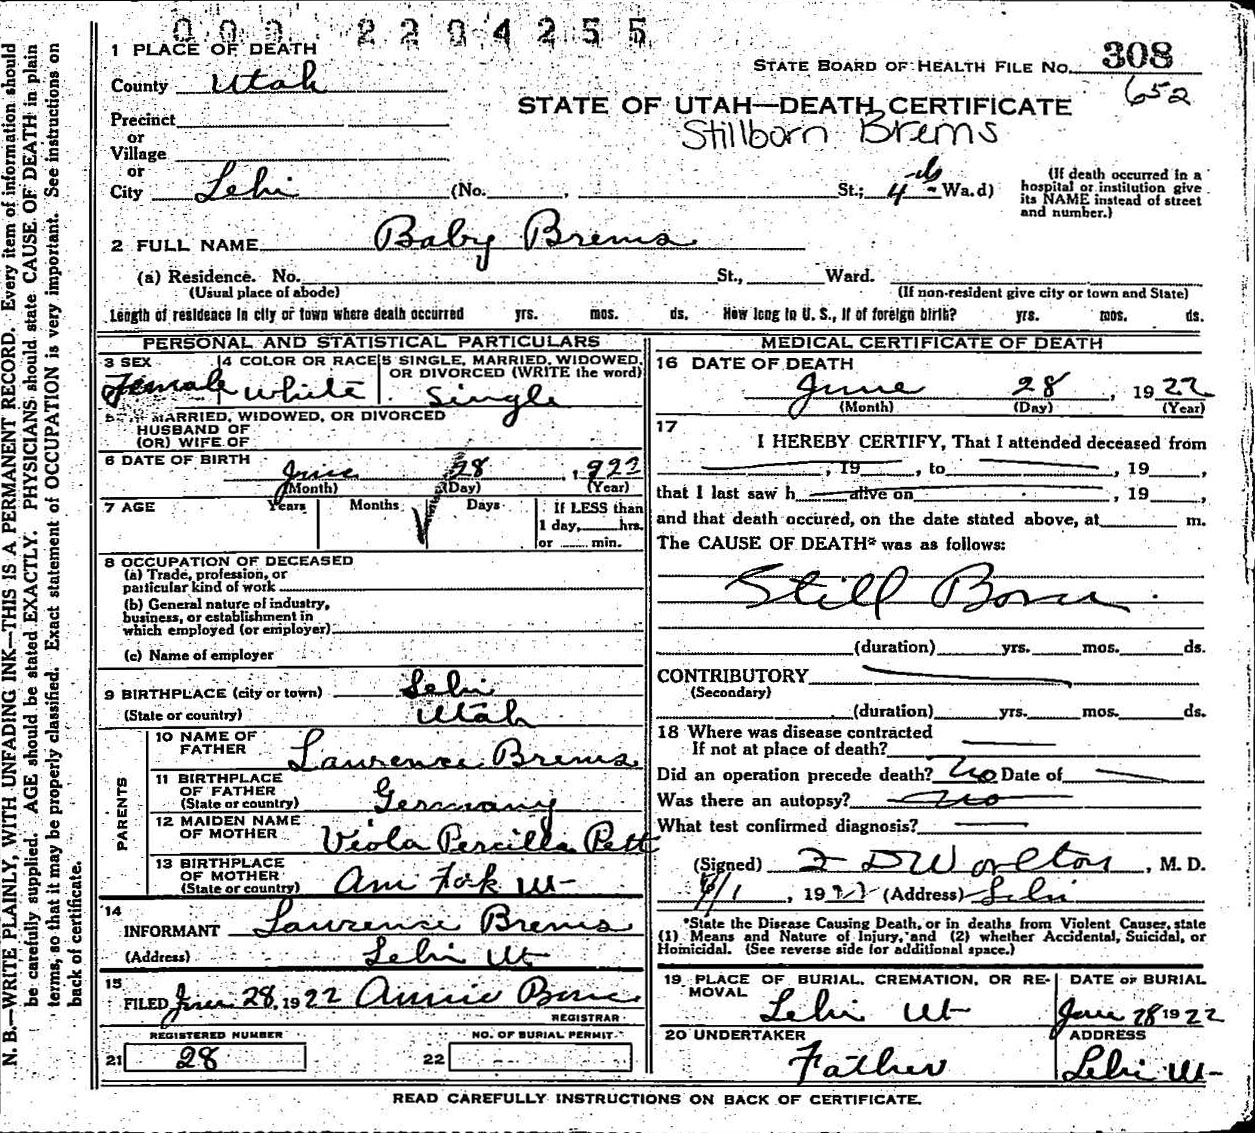 000 2204255
1 PLACE OF DEATH
County Utah
STATE BOARD OF HEALTH FILE No. 308
652
STATE OF UTAH—DEATH CERTIFICATE
Stillborn Brems
Precinct
or
Village
or
City Lehi (No. , St.; 4th Wa.d)
(If death occurred in a hospital or institution give its NAME instead of street and number.)
2 FULL NAME Baby Brems
(a) Residence. No. St., Ward.
(Usual place of abode) (If non-resident give city or town and State)
Length of residence in city or town where death occurred yrs. mos. ds. How long in U. S., if of foreign birth? yrs. mos. ds.
PERSONAL AND STATISTICAL PARTICULARS
3 SEX Female
4 COLOR OR RACE White
5 SINGLE, MARRIED, WIDOWED, OR DIVORCED (WRITE the word) Single
MARRIED, WIDOWED, OR DIVORCED
HUSBAND OF
(OR) WIFE OF
6 DATE OF BIRTH June 28, 1922
(Month) (Day) (Year)
7 AGE Years Months Days If LESS than
1 day, hrs.
or min.
8 OCCUPATION OF DECEASED
(a) Trade, profession, or
particular kind of work
(b) General nature of industry,
business, or establishment in
which employed (or employer)
(c) Name of employer
9 BIRTHPLACE (city or town) Lehi
(State or country) Utah
PARENTS
10 NAME OF
FATHER Laurence Brems
11 BIRTHPLACE
OF FATHER
(State or country) Germany
12 MAIDEN NAME
OF MOTHER Viola Percilla Pett
13 BIRTHPLACE
OF MOTHER
(State or country) Am Fork Ut
14
INFORMANT Laurence Brems
(Address) Lehi Ut
15
FILED June 28, 1922 Annie
REGISTRAR
REGISTERED NUMBER
21 28
NO. OF BURIAL PERMIT
22
MEDICAL CERTIFICATE OF DEATH
16 DATE OF DEATH
June 28, 1922
(Month) (Day) (Year)
17
I HEREBY CERTIFY, That I attended deceased from
, 19 , to , 19 ,
that I last saw h alive on , 19 ,
and that death occured, on the date stated above, at m.
The CAUSE OF DEATH* was as follows:
Still Born
(duration) yrs. mos. ds.
CONTRIBUTORY
(Secondary)
(duration) yrs. mos. ds.
18 Where was disease contracted
If not at place of death?
Did an operation precede death? No Date of
Was there an autopsy? no
What test confirmed diagnosis?
(Signed) , M. D.
, 19 (Address) Lehi
*State the Disease Causing Death, or in deaths from Violent Causes, state
(1) Means and Nature of Injury, and (2) whether Accidental, Suicidal, or
Homicidal. (See reverse side for additional space.)
19 PLACE OF BURIAL, CREMATION, OR REMOVAL Lehi Ut
DATE OF BURIAL June 28 1922
20 UNDERTAKER Father
ADDRESS Lehi Ut
READ CAREFULLY INSTRUCTIONS ON BACK OF CERTIFICATE.
N. B.—WRITE PLAINLY, WITH UNFADING INK—THIS IS A PERMANENT RECORD. Every item of information should
be carefully supplied. AGE should be stated EXACTLY. PHYSICIANS should state CAUSE OF DEATH in plain
terms, so that it may be properly classified. Exact statement of OCCUPATION is very important. See instructions on
back of certificate.